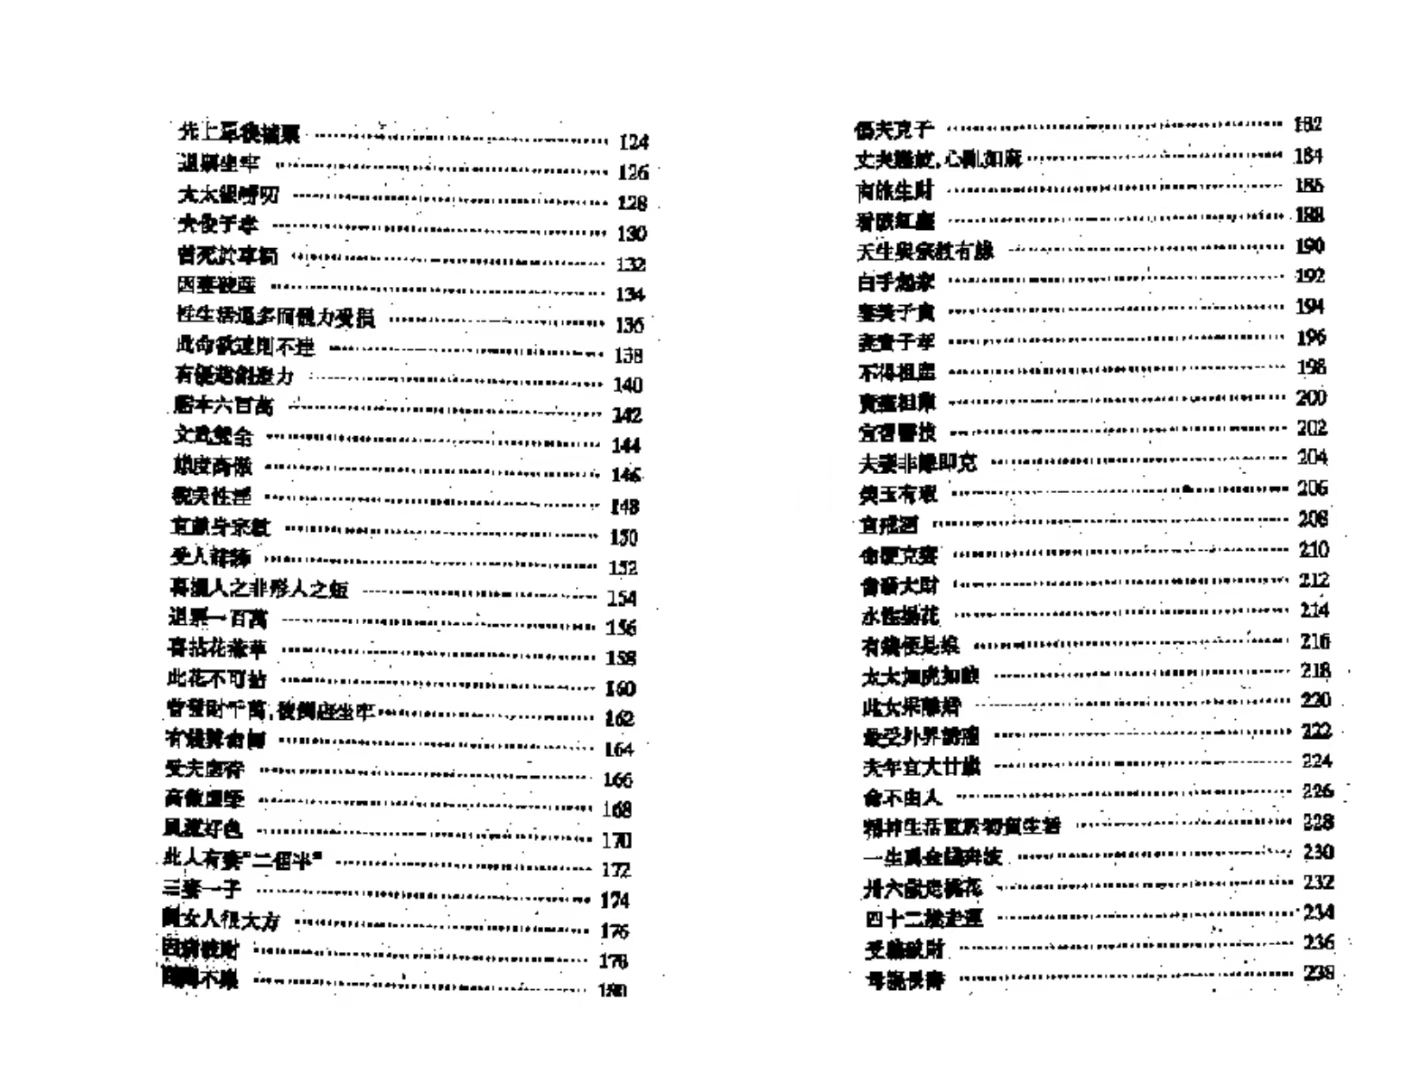 先上車後補票 124
退票坐牢 126
太太很嘮叨 128
夫俊子孝 130
曾死於車禍 132
因妻破產 134
性生活過多而視力受損 136
此命欲速則不達 138
有優越創造力 140
賠本六百萬 142
文武雙全 144
態度高傲 146
貌美性淫 148
宜獻身宗教 150
受人尊 152
喜揭人之非形人之短 154
退票一百萬 156
喜拈花惹草 158
此花不可拈 160
曾發財千萬,被倒店坐牢 162
有錢算命師 164
受夫虐待 166
高傲 168
風流好色 170
此人有妻“二個半” 172
三妻一子 174
女人很大方 176
因病破財 178
不 180
傷夫克子 182
丈夫,心亂如麻 184
商旅生財 186
看破紅塵 188
天生與宗教有緣 190
白手起家 192
妻美子貴 194
妻賢子孝 196
不得祖產 198
賣產 200
宜習醫技 202
夫妻非離即克 204
美玉有瑕 206
宜戒酒 208
命硬克妻 210
曾發大財 212
水性楊花 214
有錢便是娘 216
太太如虎如狼 218
此女果離婚 220
最受外界誘惑 222
夫年宜大廿歲 224
命不由人 226
精神生活重於物質生活 228
一生為金錢奔波 230
卅六歲走桃花 232
四十二歲走運 234
受騙破財 236
母親長壽 238